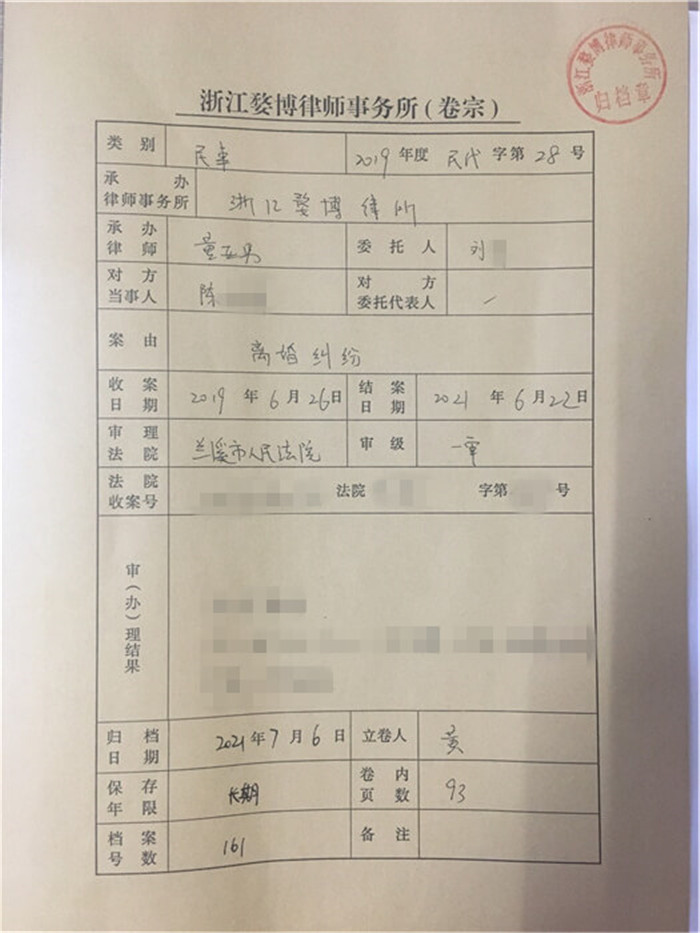 浙江婺博律师事务所
归档章
浙江婺博律师事务所（卷宗）
类别 民事 2019年度 民代 字第 28 号
承办
律师事务所 浙江婺博律所
承办
律师 童亚男 委托人 刘
对方
当事人 陈 对方
委托代表人 /
案由 离婚纠纷
收案
日期 2019年6月26日 结案
日期 2021年6月22日
审理
法院 兰溪市人民法院 审级 一审
法院
收案号 法院 字第 号
审(办)理结果
归档
日期 2021年7月6日 立卷人 黄
保存
年限 长期 卷内
页数 93
档案
号数 161 备注